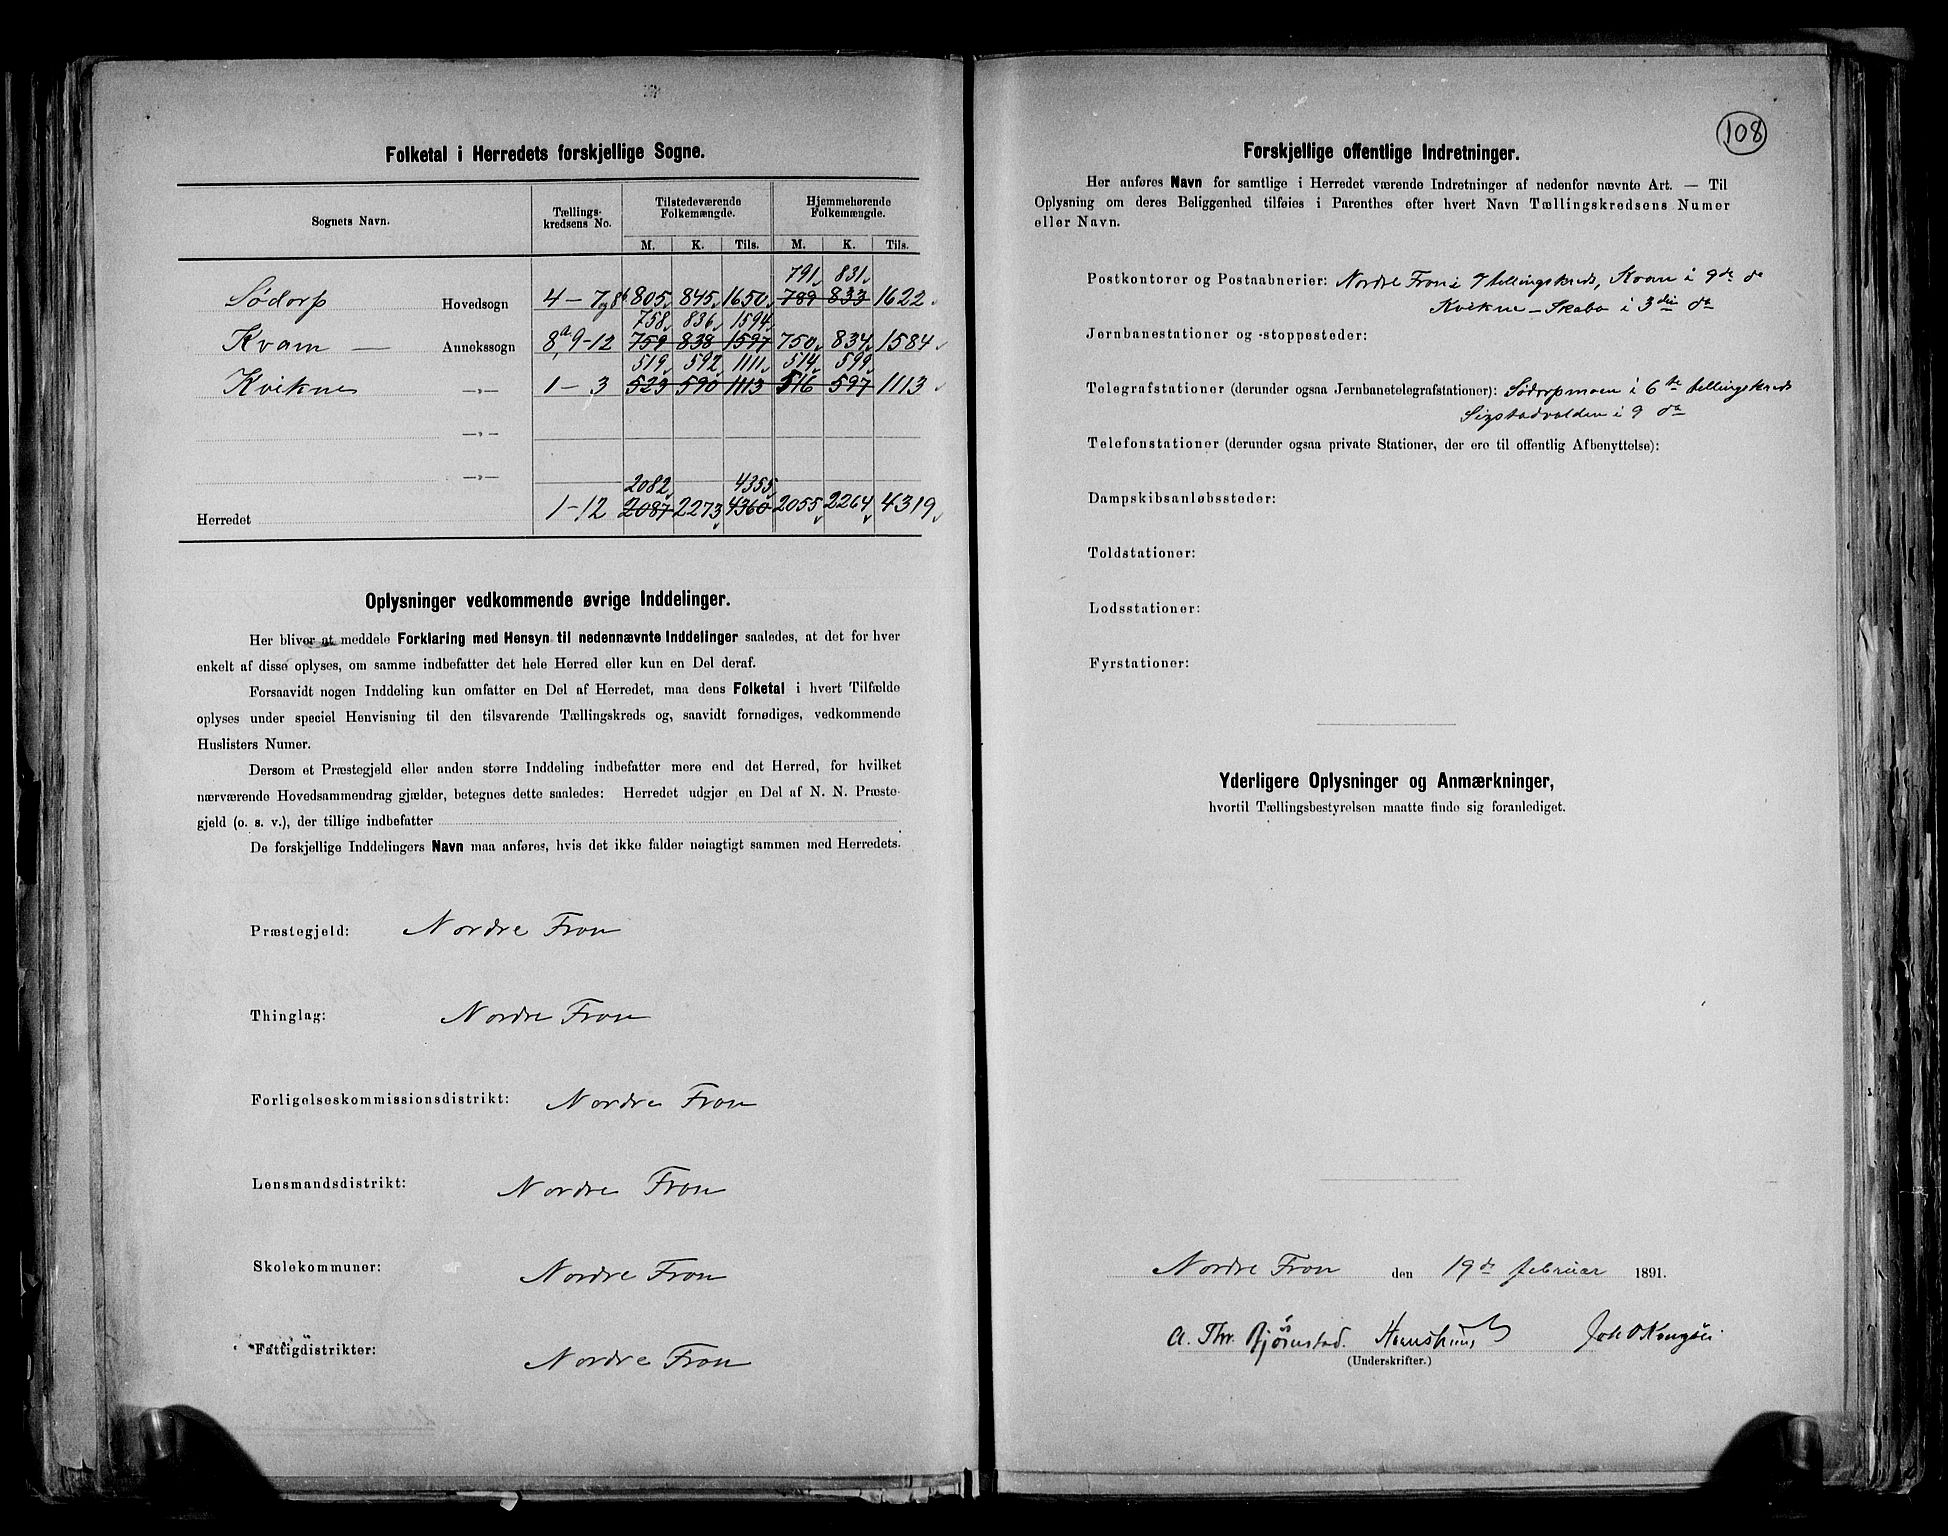 Folketal i Herredets forskjellige Sogne.
Sognets Navn. Tællings-kredsens No. Tilstedeværende Folkemængde. Hjemmehørende Folkemængde.
M. K. Tils. M. K. Tils.
791 831
Sødorp Hovedsogn 4-7 og 8b 805 845 1650 789 833 1622
758 836 1594
Kvam — Annekssogn 8a, 9-12 759 838 1597 750 834 1584
519 592 1111 514 599
Kvikne —„— 1-3 523 590 1113 516 597 1113
—„—
—„—
2082 4355
Herredet 1-12 2087 2273 4360 2055 2264 4319
Oplysninger vedkommende øvrige Inddelinger.
Her bliver at meddele Forklaring med Hensyn til nedennævnte Inddelinger saaledes, at det for hver
enkelt af disse oplyses, om samme indbefatter det hele Herred eller kun en Del deraf.
Forsaavidt nogen Inddeling kun omfatter en Del af Herredet, maa dens Folketal i hvert Tilfælde
oplyses under speciel Henvisning til den tilsvarende Tællingskreds og, saavidt fornødiges, vedkommende
Huslisters Numer.
Dersom et Præstegjeld eller anden større Inddeling indbefatter mere end det Herred, for hvilket
nærværende Hovedsammendrag gjælder, betegnes dette saaledes: Herredet udgjør en Del af N. N. Præste-
gjeld (o. s. v.), der tillige indbefatter
De forskjellige Inddelingers Navn maa anføres, hvis det ikke falder nøiagtigt sammen med Herredets.
Præstegjeld: Nordre Fron
Thinglag: Nordre Fron
Forligelseskommissionsdistrikt: Nordre Fron
Lensmandsdistrikt: Nordre Fron
Skolekommuner: Nordre Fron
Fattigdistrikter: Nordre Fron
108
Forskjellige offentlige Indretninger.
Her anføres Navn for samtlige i Herredet værende Indretninger af nedenfor nævnte Art. — Til
Oplysning om deres Beliggenhed tilføies i Parenthes efter hvert Navn Tællingskredsens Numer
eller Navn.
Postkontorer og Postaabnerier: Nordre Fron i 7 tellingskreds, Kvam i 9de do
Kvikne - Skabo i 3die do
Jernbanestationer og -stoppesteder:
Telegrafstationer (derunder ogsaa Jernbanetelegrafstationer): Sødorpmoen i 6te tellingskreds
Sigstadvolden i 9 do
Telefonstationer (derunder ogsaa private Stationer, der ere til offentlig Afbenyttelse):
Dampskibsanløbssteder:
Toldstationer:
Lodsstationer:
Fyrstationer:
Yderligere Oplysninger og Anmærkninger,
hvortil Tællingsbestyrelsen maatte finde sig foranlediget.
Nordre Fron den 19de februar 1891.
A. Thr. Bjørnstad.
(Underskrifter.)